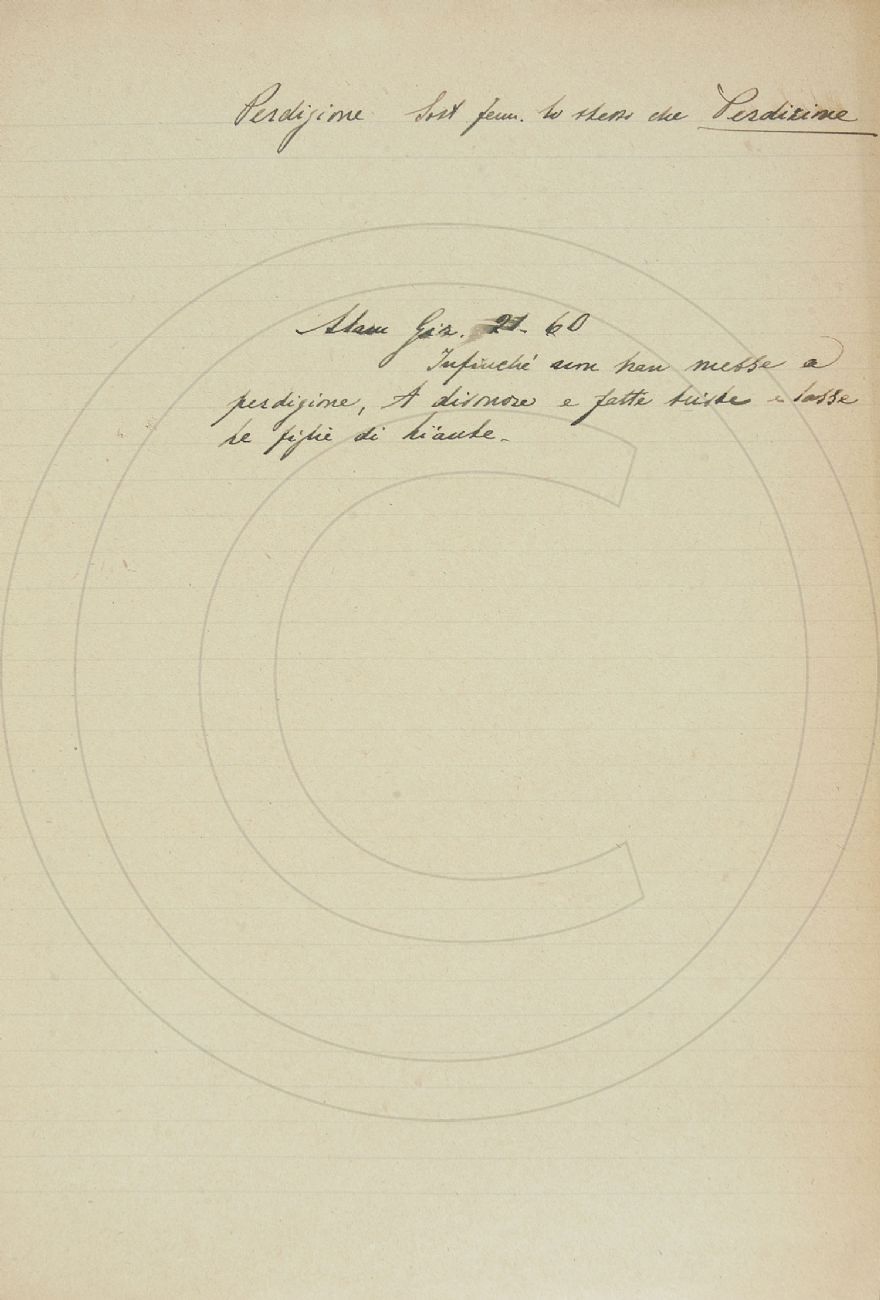 Perdigione Sost fem. lo stesso che Perdizione
Alam Gir. 21. 60
Infinché non han messe a
perdigione, A disonore e fatte triste e lasse
le figlie di